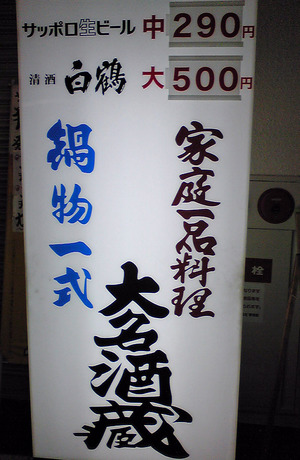 サッポロ生ビール 中 290円
清酒 白鶴 大 500円
家庭一品料理
鍋物一式
大名酒蔵
栓